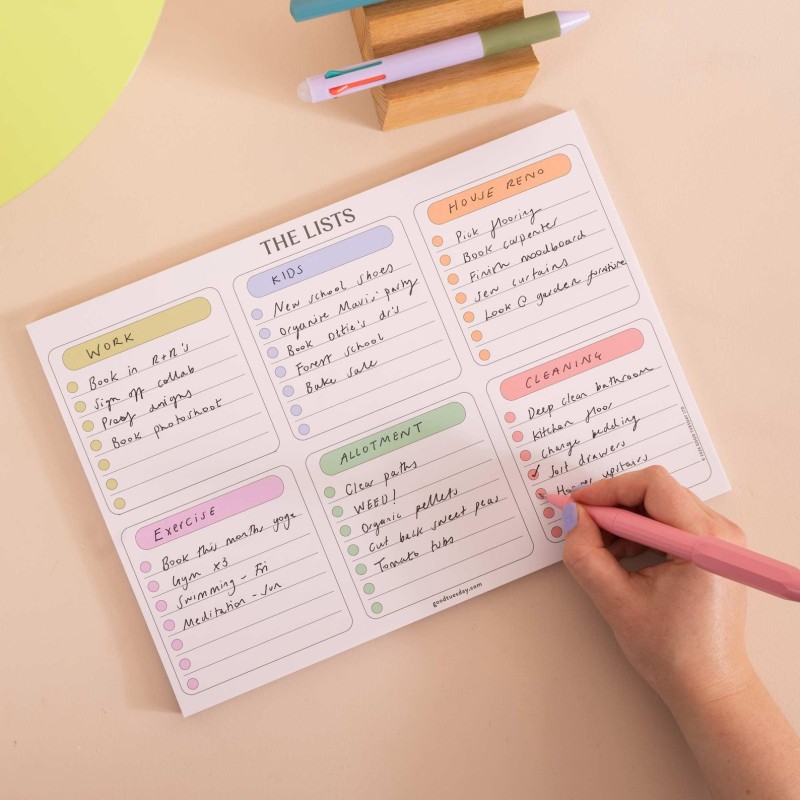 THE LISTS
WORK
Book in R+R's
Sign off collab
Proof designs
Book photoshoot
KIDS
New school shoes
Organise Mavi's party
Book Ottie's dr's
Forest school
Bake sale
HOUSE RENO
Pick flooring
Book carpenter
Finish moodboard
Sew curtains
Look @ garden furniture
Exercise
Book this months yoga
Gym x3
Swimming - Fri
Meditation - Sun
ALLOTMENT
Clear paths
WEED!
Organic pellets
Cut back sweet peas
Tomato tubs
CLEANING
Deep clean bathroom
Kitchen floor
Change bedding
Sort drawers
Hoover upstairs
goodtuesday.com